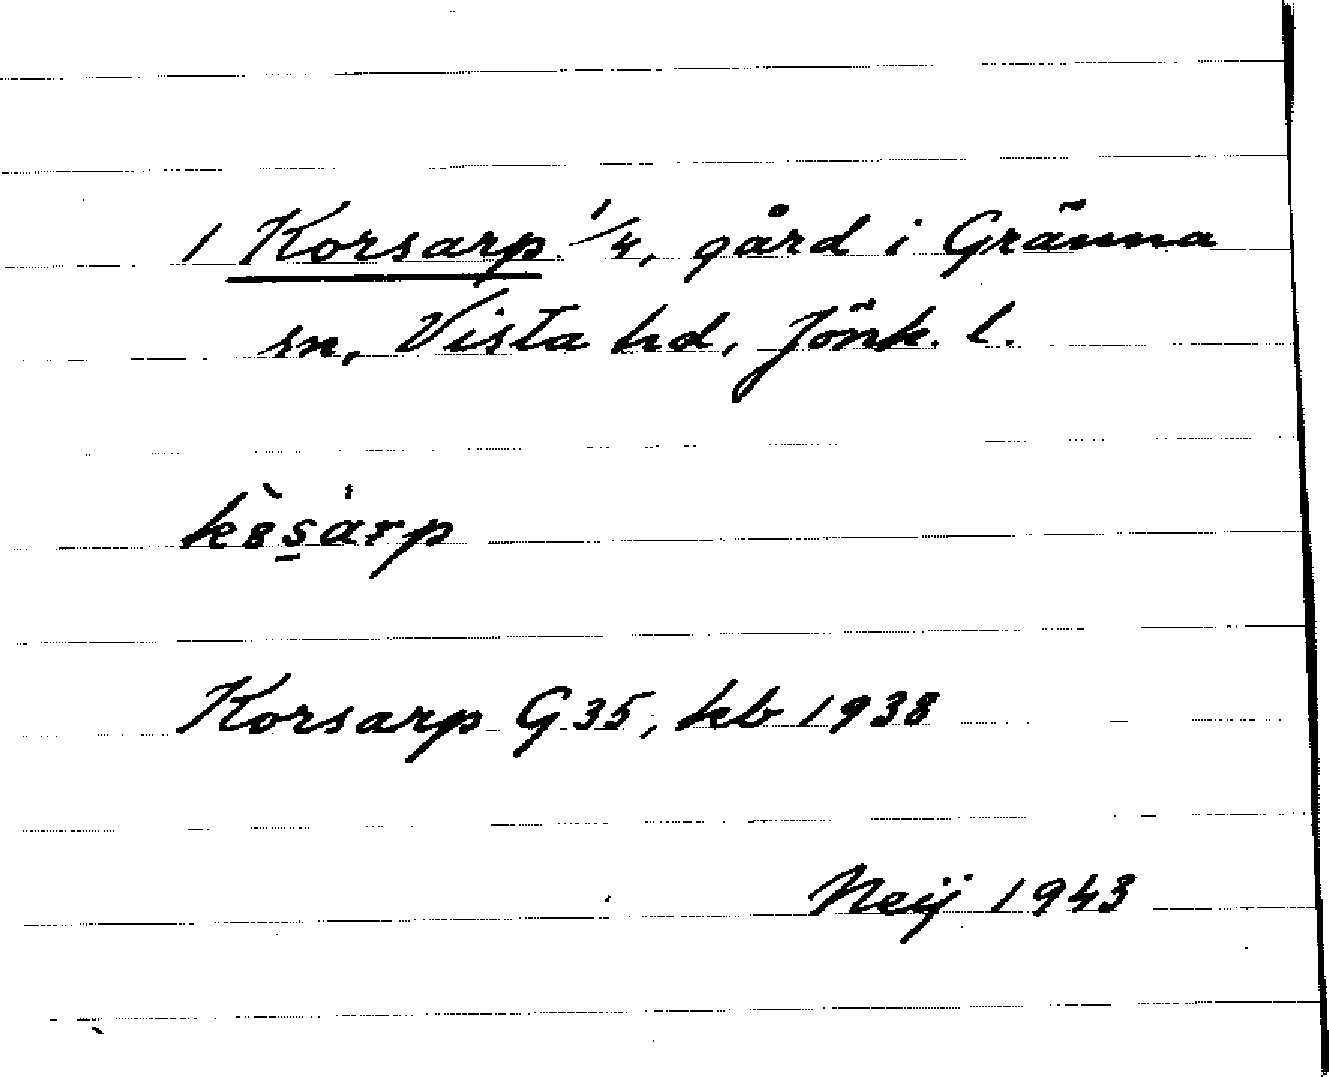 1 Korsarp 1/4, gård i Gränna
sn, Vista hd, Jönk. l.
Korsarp G 35, kb 1938
Neij 1943